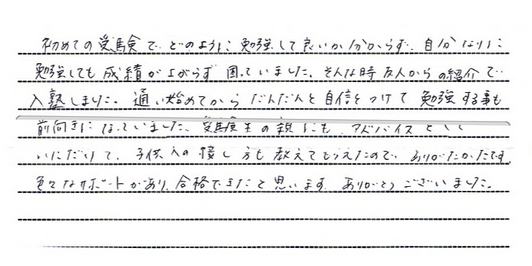 初めての受験で、どのように勉強して良いか分からず、自分なりに
勉強しても成績が上がらず困っていました。そんな時友人からの紹介で
入塾しました。通い始めてからだんだんと自信をつけて勉強する事も
前向きになっていました。受験生の親にも、アドバイスを
いただけて、子供への接し方も教えてもらえたので、ありがたかったです。
色々なサポートがあり、合格できたと思います。ありがとうございました。